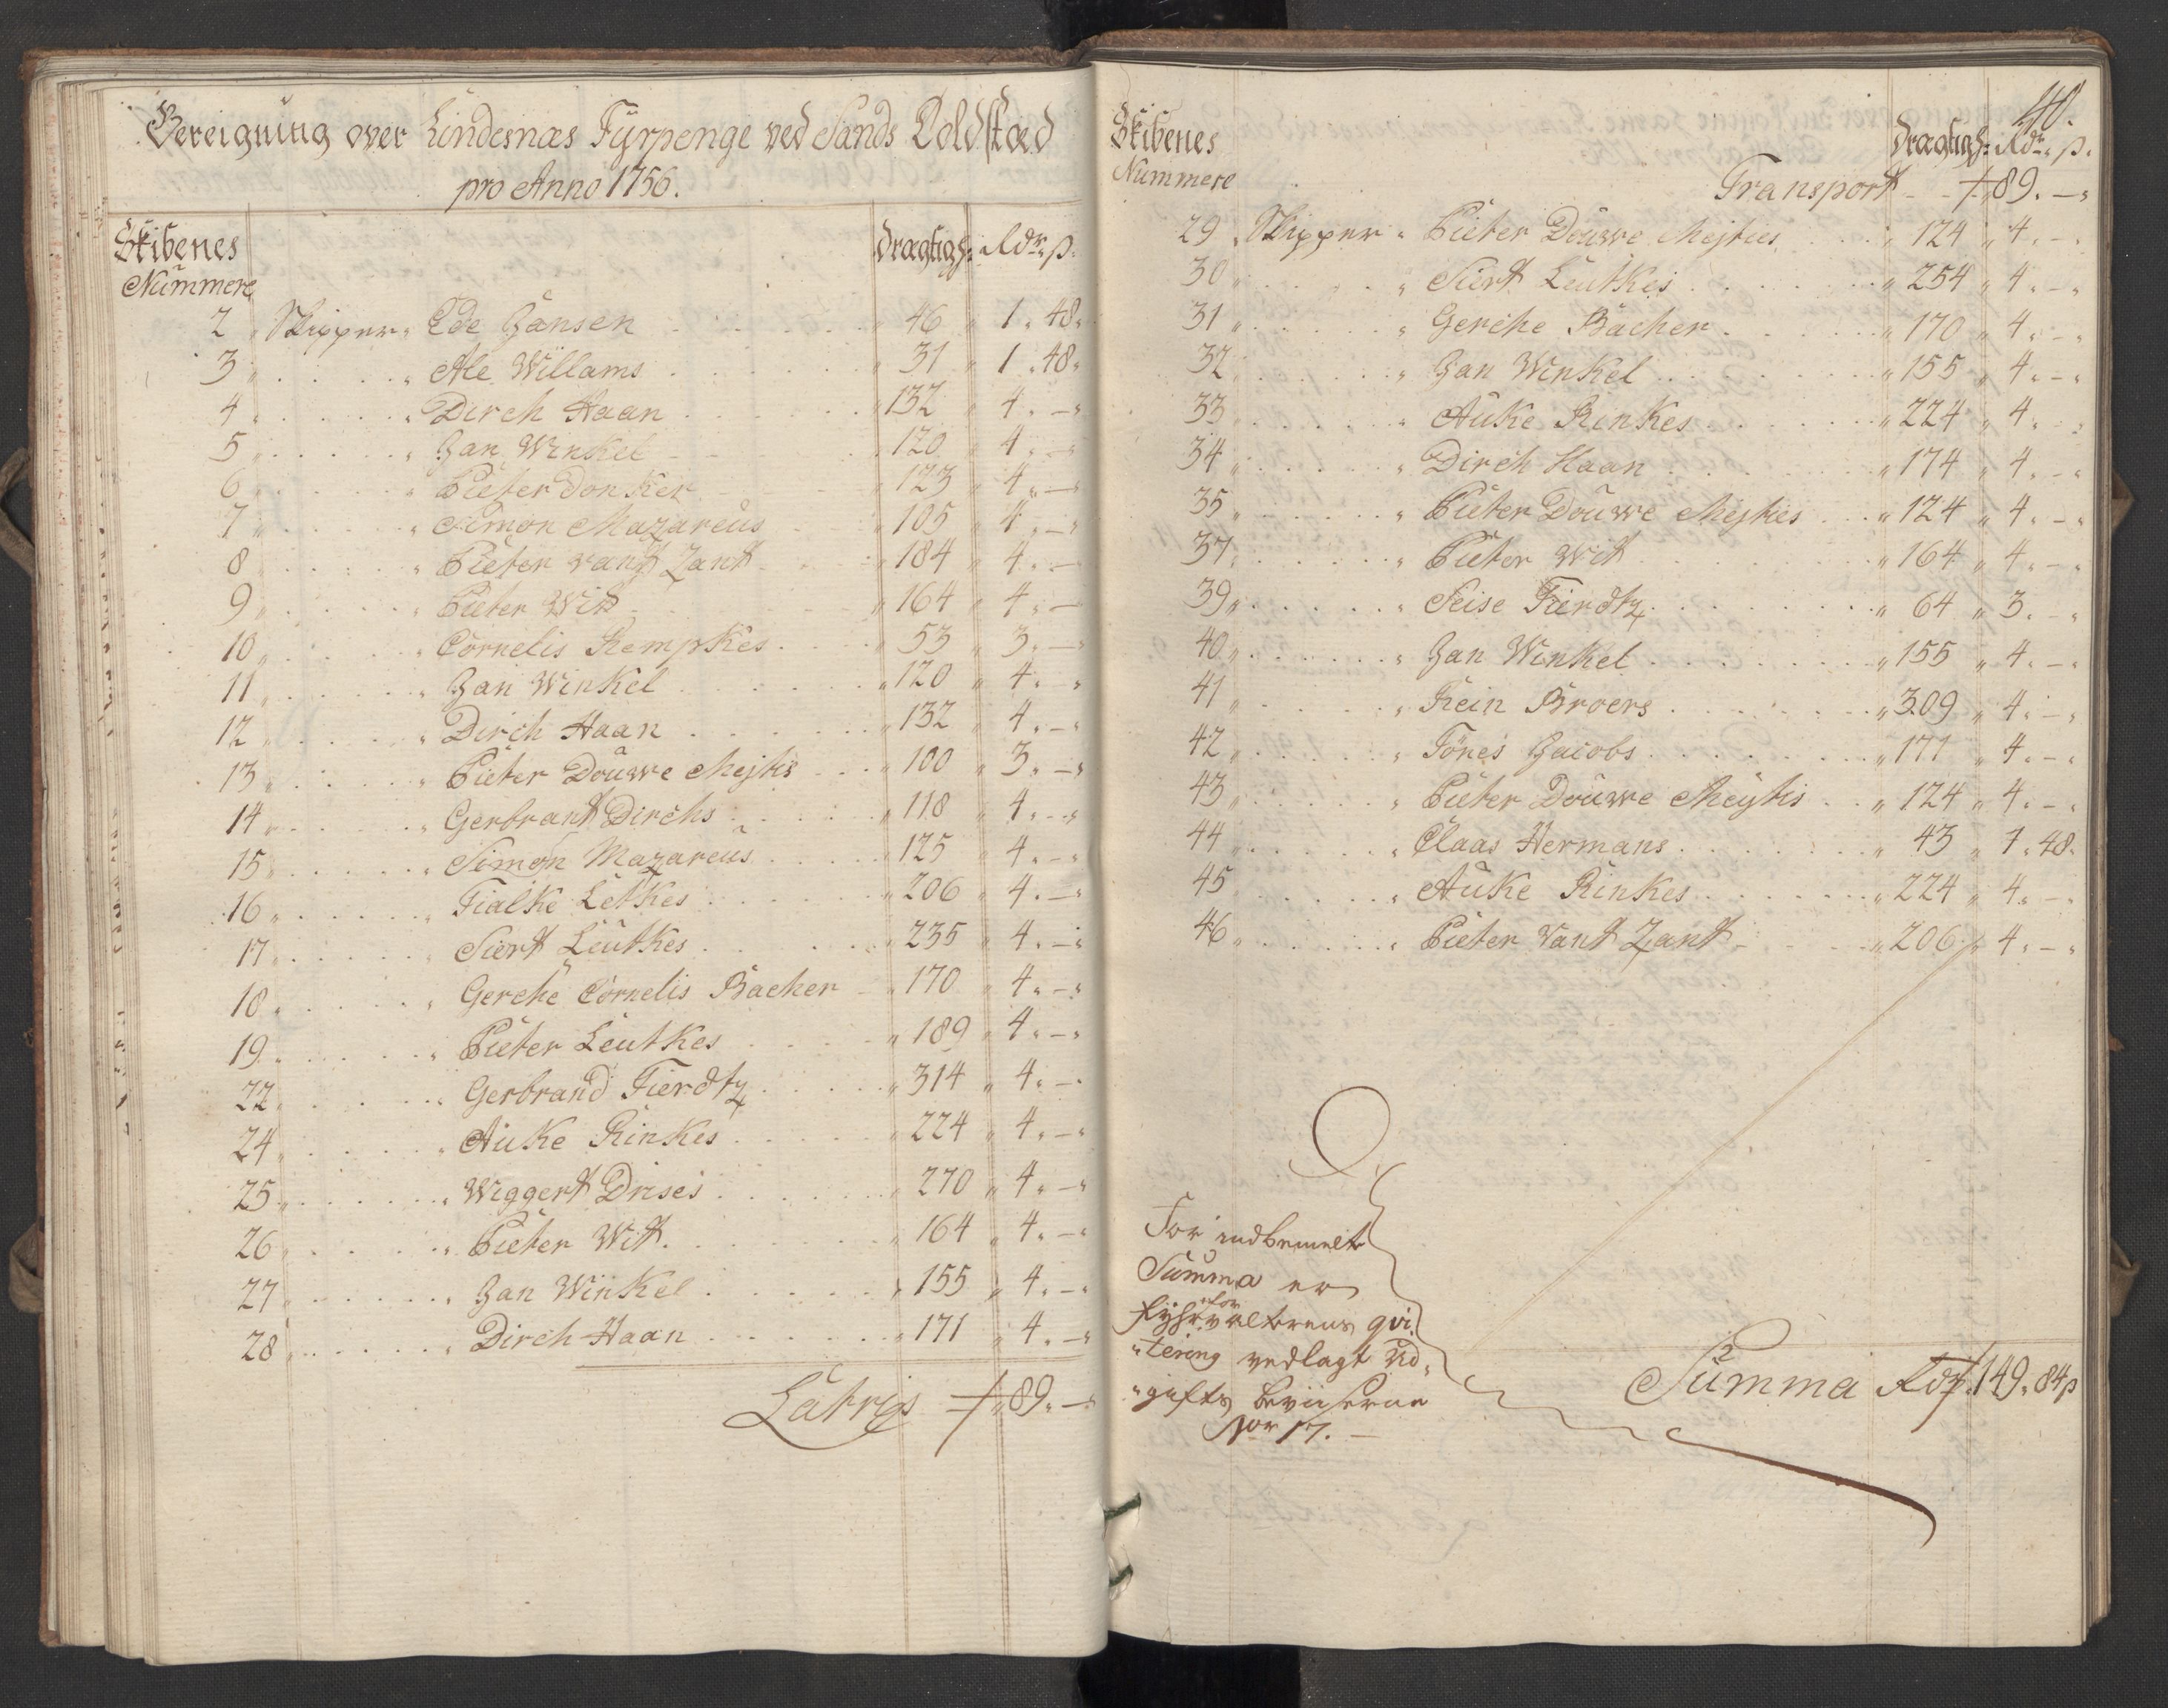 Bereigning over Lindesnæs Fÿrpenge ved Sands Toldstæd
pro Anno 1756.
Skibenes Nummere drægtigh: Rdr. ß.
2 Skipper Ede Jansen 46 1. 48
3 Ale Willams 31 1. 48
4 Dirch Haan 132 4. -
5 Jan Winkel 120 4. -
6 Pieter Donker 123 4. -
7 Simon Mazareus 105 4. -
8 Pieter vant Zant 184 4. -
9 Pieter Wit 164 4. -
10 Cornelis Rempkes 53 3. -
11 Jan Winkel 120 4. -
12 Dirch Haan 132 4. -
13 Pieter Douwe Mejtis 100 3. -
14 Gerbrant Dirchs 118 4. -
15 Simon Mazareus 125 4. -
16 Fialke Letkes 206 4. -
17 Siert Leutkes 235 4. -
18 Gerche Cornelis Bacher 170 4. -
19 Pieter Leutkes 189 4. -
22 Gerbrand Fierdtz 314 4. -
24 Auke Rinkes 224 4. -
25 Wiggert Drises 270 4. -
26 Pieter Wit 164 4. -
27 Jan Winkel 155 4. -
28 Dirch Haan 171 4. -
Latris 89. -
40.
Skibenes Nummere drægtigh: Rdr. ß.
Transport 89. -
29 Skipper Pieter Douwe Mejties 124 4. -
30 Siert Leutkes 254 4. -
31 Gerche Bacher 170 4. -
32 Jan Winkel 155 4. -
33 Auke Rinkes 224 4. -
34 Dirch Haan 174 4. -
35 Pieter Douwe Mejties 124 4. -
37 Pieter Wit 164 4. -
39 Seise Fierdtz 64 3. -
40 Jan Winkel 155 4. -
41 Rein Broers 309 4. -
42 Tönes Jacobs 171 4. -
43 Pieter Douwe Meÿtis 124 4. -
44 Claas Hermans 43 1. 48.
45 Auke Rinkes 224 4. -
46 Pieter Vant Zant 206 4. -
For indbemelte
Summa er
Fyhrforvalterens qvi
tering vedlagt Ud
gifts beviiserne
Nor 17.
Summa Rdr. 149. 84 ß